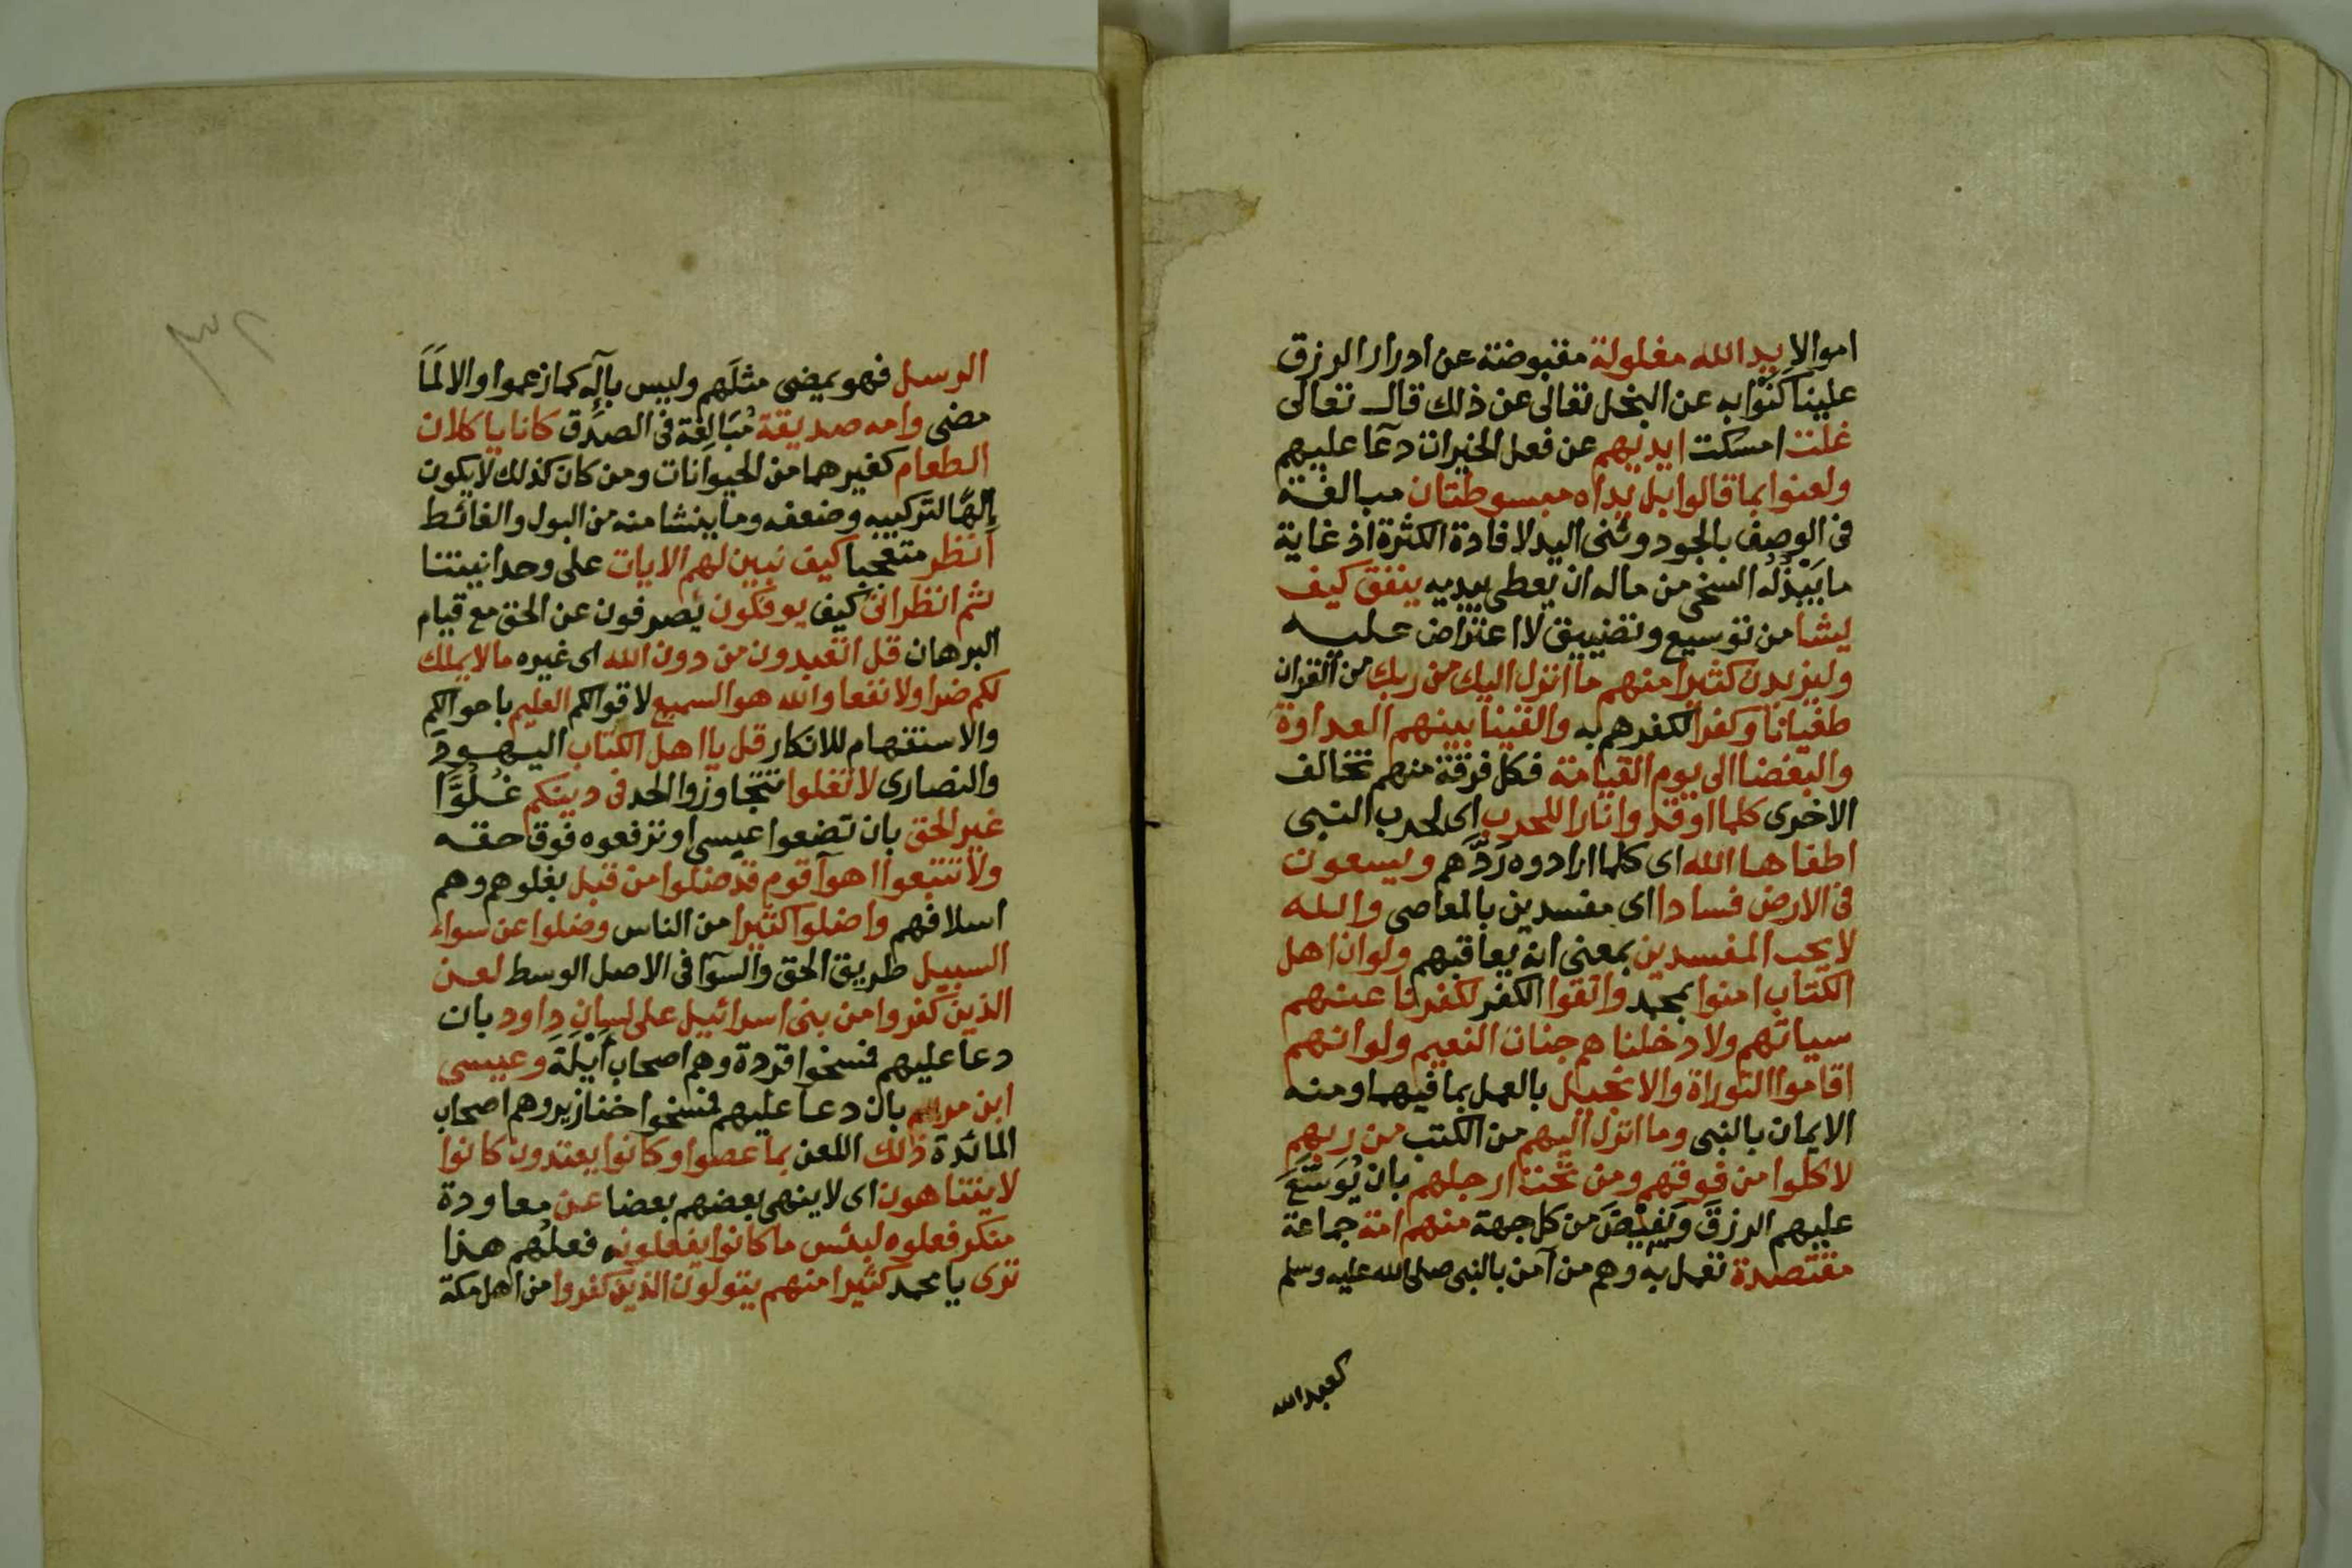 اموالا يد الله مغلولة مقبوضة عن ادرار الرزق
علينا كَنَّوْا به عن البخل تعالى عن ذلك قال تعالى
غلت امسكت ايديهم عن فعل الخيرات دعآ عليهم
ولعنوا بما قالوا بل يداه مبسوطتان مبالغة
فى الوصف بالجود وثنى اليد لافادة الكثرة اذ غاية
ما يَبْذُلُه السخى من ماله ان يعطى بيديه ينفق كيف
يشا من توسيع وتضييق لا اعتراض عليه
وليزيدن كثيرا منهم ما انزل اليك من ربك من القران
طغيانا وكفرا لكفرهم به والقينا بينهم العداوة
والبغضا الى يوم القيامة فكل فرقة منهم تخالف
الاخرى كلما اوقدوا نارا للحرب اى لحرب النبى
اطفاها الله اى كلما ارادوه رَدَّهم ويسعون
فى الارض فسادا اى مفسدين بالمعاصى والله
لا يحب المفسدين بمعنى انه يعاقبهم ولو ان اهل
الكتاب امنوا بمحمد واتقوا الكفر لكفرنا عنهم
سياتهم ولادخلناهم جنات النعيم ولو انهم
اقاموا التوراة والانجيل بالعمل بما فيهما ومنه
الايمان بالنبى وما انزل اليهم من الكتب من ربهم
لاكلوا من فوقهم ومن تحت ارجلهم بان يُوَسِّعَ
عليهم الرزقَ ويَفِيْضَ من كل جهة منهم امة جماعة
مقتصدة تعمل به وهم من آمن بالنبى صلى الله عليه وسلم
كعبد الله
الرسل فهو يمضى مثلَهم وليس بآلِه كما زعموا والا لَمَا
مضى وامه صديقة مُبَالِغَة فى الصدق كانا ياكلان
الطعام كغيرهما من الحيوانات ومن كان كذلك لا يكون
إلهًا لتركيبه وضعفه وما ينشا منه من البول والغائط
انظر متعجبا كيف نبين لهم الايات على وحدانيتنا
ثم انظر انى كيف يوفكون يُصرفون عن الحق مع قيام
البرهان قل اتعبدون من دون الله اى غيره ما لا يملك
لكم ضرا ولا نفعا والله هو السميع لاقوالكم العليم باحوالكم
والاستفهام للانكار قل يا اهل الكتاب اليهودَ
والنصارى لا تغلوا تتجاوزوا الحد فى دينكم غُلُوًّا
غير الحق بان تضعوا عيسى او ترفعوه فوق حقه
ولا تتبعوا اهوآ قوم قد ضلوا من قبل بغلوهم وهم
اسلافهم واضلوا كثيرا من الناس وضلوا عن سواء
السبيل طريق الحق والسوآ فى الاصل الوسط لعن
الذين كفروا من بنى اسرائيل على لسان داود بان
دعا عليهم فمسخوا قردة وهم اصحاب أَيْلَة وعيسى
ابن مريم بان دعا عليهم فمسخوا خنازير وهم اصحاب
المائدة ذلك اللعن بما عصوا وكانوا يعتدون كانوا
لا يتناهون اى لا ينهى بعضهم بعضا عن معاودة
منكر فعلوه لبئس ما كانوا يفعلونه فعلُهم هذا
ترى يا محمد كثيرا منهم يتولون الذين كفروا من اهل مكة